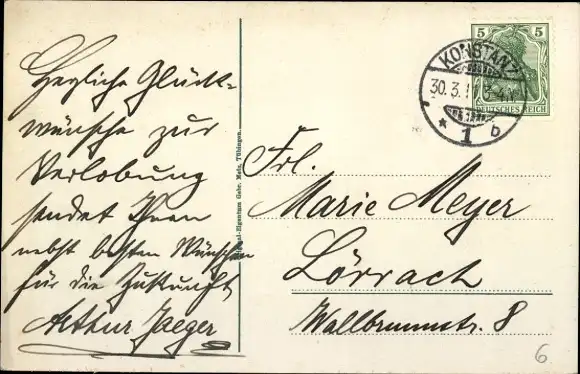 Herzliche Glück-
wünsche zur
Verlobung
sendet Ihnen
nebst besten Wünschen
für die Zukunft
Arthur Jaeger
Original-Eigentum Gebr. Metz, Tübingen.
5 5
DEUTSCHES REICH
KONSTANZ
30.3.11
* 1 b
Frl.
Marie Meyer
Lörrach
Wallbrunnstr. 8
6